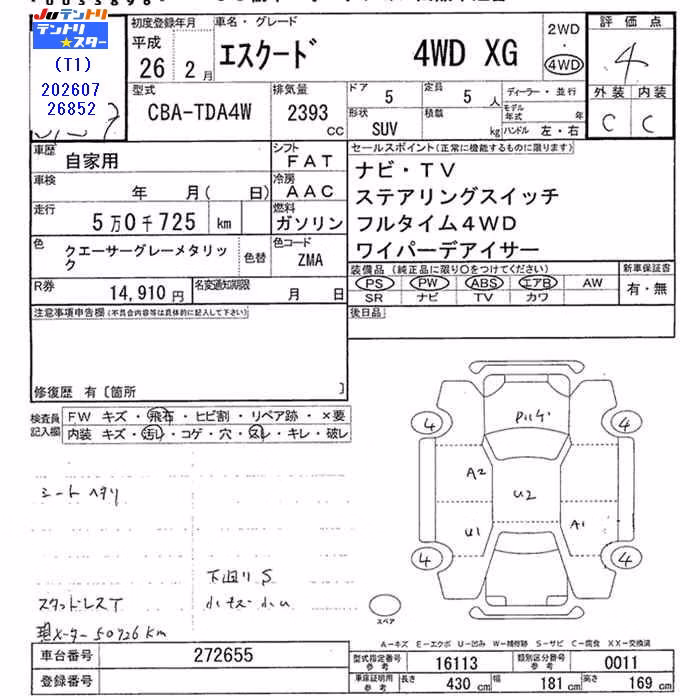 Juテントリ
テントリ★スター
(T1)
202607
26852
初度登録年月
平成
26年 2月
車名・グレード
エスクード 4WD XG
2WD
・
4WD
評価点
4
外装 内装
C C
型式
CBA-TDA4W
排気量
2393
CC
ドア
5
定員
5人
形状
SUV
積載
kg
ディーラー・並行
モデル年式 年
ハンドル 左・右
車歴
自家用
シフト
FAT
車検
年 月( 日)
冷房
AAC
走行
5万0千725 km
燃料
ガソリン
色
クエーサーグレーメタリック
色替
色コード
ZMA
R券
14,910円
名変通知期限
月 日
セールスポイント(正常に機能するものに限ります)
ナビ・TV
ステアリングスイッチ
フルタイム4WD
ワイパーデアイサー
装備品(純正品に限り○をつけてください)
PS PW ABS エアB AW
SR ナビ TV カワ
新車保証書
有・無
注意事項申告欄(不具合内容等は具体的に記入して下さい)
後日品
修復歴 有〔箇所 〕
検査員記入欄
FW キズ・飛石・ヒビ割・リペア跡・×要
内装 キズ・汚レ・コゲ・穴・スレ・キレ・破レ
シートヘタリ
下回りS
スタッドレスT
現メーター50726Km
4
4
4
4
A2
U2
U1
A1
スペア
A-キズ E-エクボ U-凹み W-補修跡 S-サビ C-腐食 XX-交換済
車台番号
272655
登録番号
型式指定番号 参考
16113
類別区分番号 参考
0011
車庫証明用 参考
長さ 430 cm 幅 181 cm 高さ 169 cm